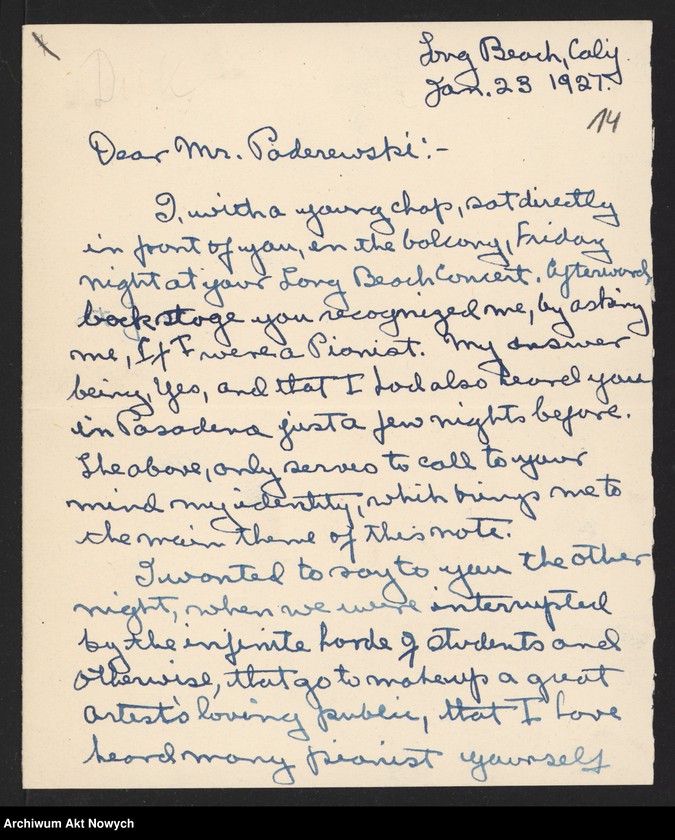 Long Beach, Calif.
Jan. 23 1927.
14
Dear Mr. Paderewski:-
I, with a young chap, sat directly
in front of you, en the balcony, Friday
night at your Long Beach Concert. Afterwards
back stage you recognized me, by asking
me, If I were a Pianist. My answer
being, Yes, and that I had also heard you
in Pasadena just a few nights before.
The above, only serves to call to your
mind my identity, which brings me to
the main theme of this note.
I wanted to say to you the other
night, when we were interrupted
by the infinite horde of students and
otherwise, that go to make up a great
artest's loving public, that I have
heard many pianist yourself
Archiwum Akt Nowych